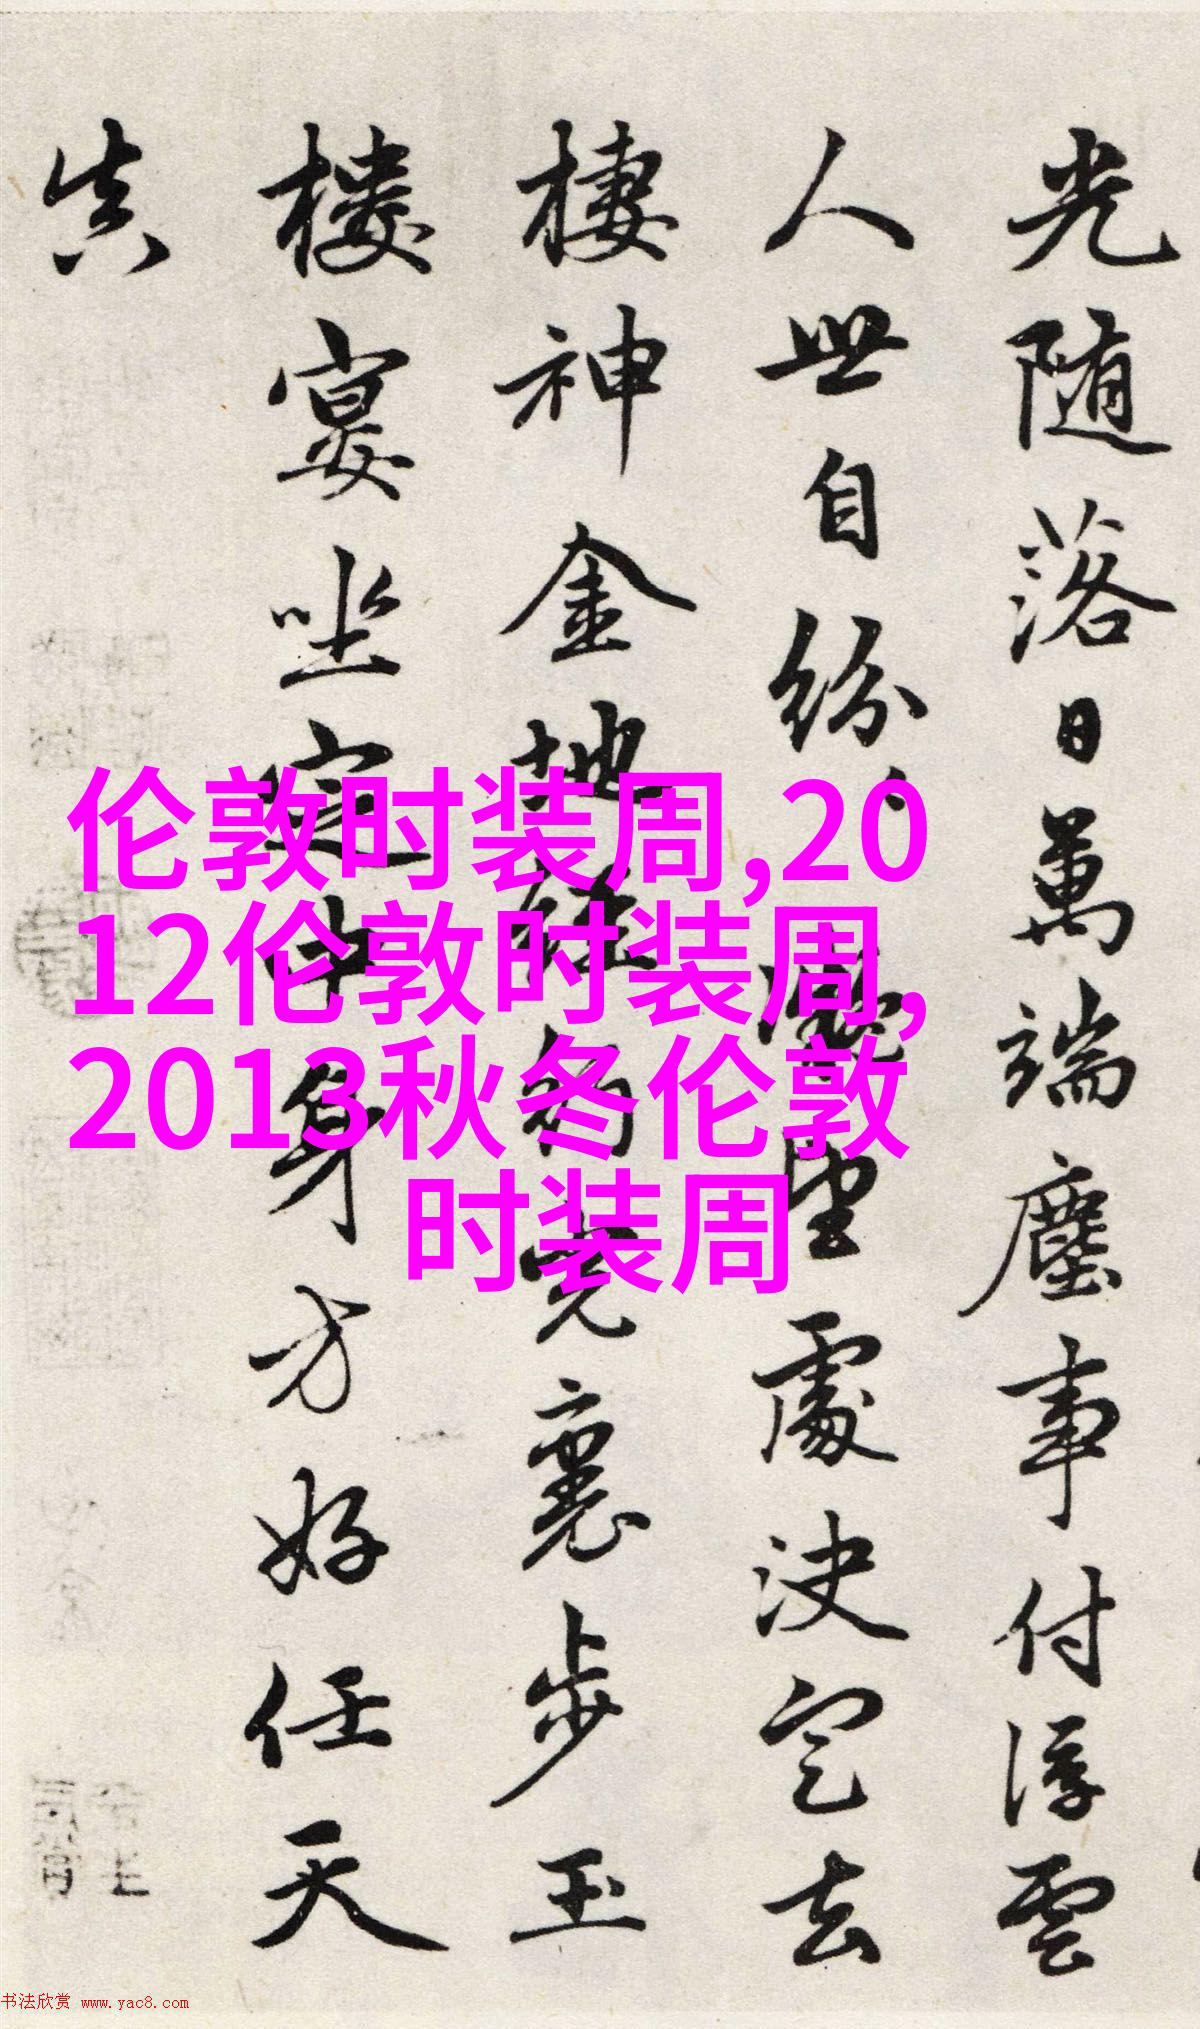 光随落日萬端塵事付浮雲
人世自紛、望處決定去
棲神金地經覺裏步玉
樓宴坐定中身方好任天
真
伦敦时装周,20
12伦敦时装周,
2013秋冬伦敦
时装周
书法欣赏 www.yac8.com